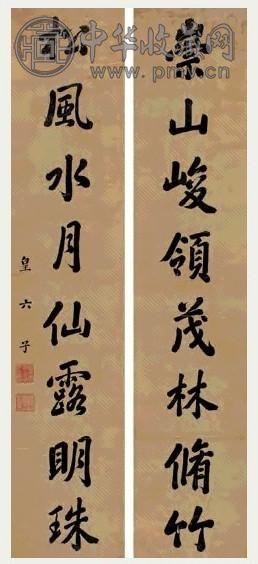 崇山峻領茂林脩竹
松風水月仙露明珠
皇六子
中华收藏网
www.pmv.cn